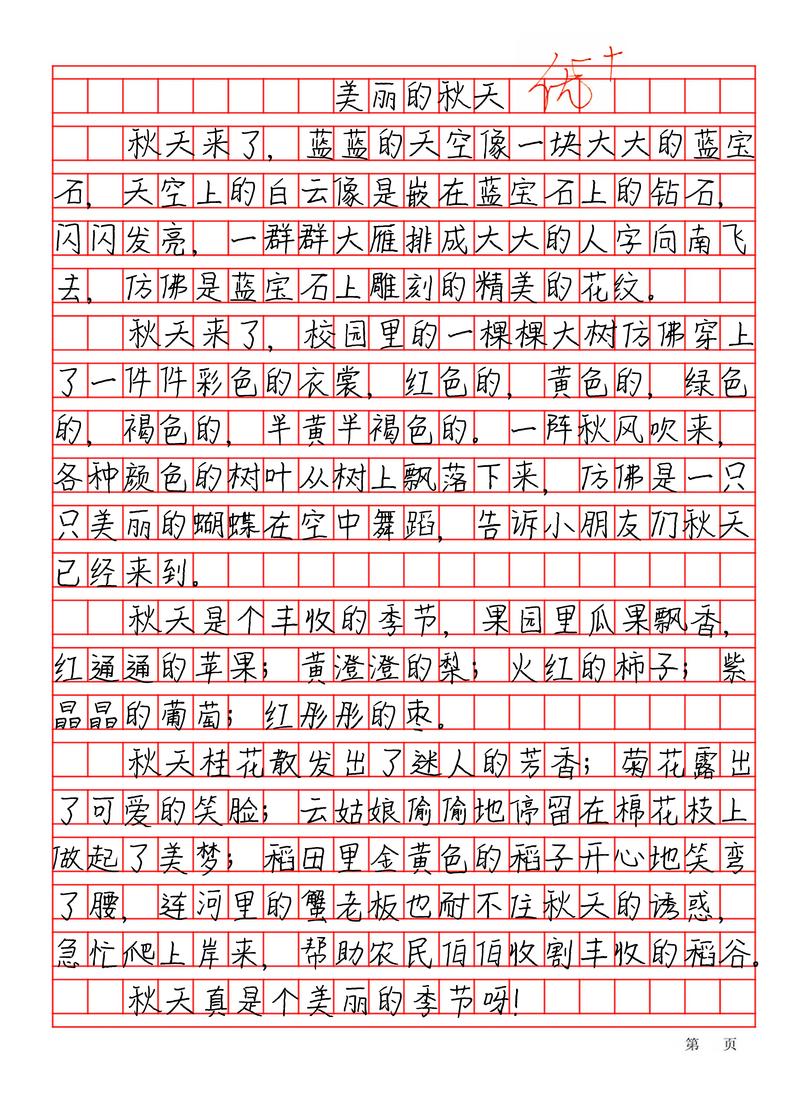 优+
美丽的秋天
秋天来了，蓝蓝的天空像一块大大的蓝宝
石，天空上的白云像是嵌在蓝宝石上的钻石，
闪闪发亮，一群群大雁排成大大的人字向南飞
去，仿佛是蓝宝石上雕刻的精美的花纹。
秋天来了，校园里的一棵棵大树仿佛穿上
了一件件彩色的衣裳，红色的，黄色的，绿色
的，褐色的，半黄半褐色的。一阵秋风吹来，
各种颜色的树叶从树上飘落下来，仿佛是一只
只美丽的蝴蝶在空中舞蹈，告诉小朋友们秋天
已经来到。
秋天是个丰收的季节，果园里瓜果飘香，
红通通的苹果；黄澄澄的梨；火红的柿子；紫
晶晶的葡萄；红彤彤的枣。
秋天桂花散发出了迷人的芳香；菊花露出
了可爱的笑脸；云姑娘偷偷地停留在棉花枝上
做起了美梦；稻田里金黄色的稻子开心地笑弯
了腰，连河里的蟹老板也耐不住秋天的诱惑，
急忙爬上岸来，帮助农民伯伯收割丰收的稻谷。
秋天真是个美丽的季节呀！
第 页